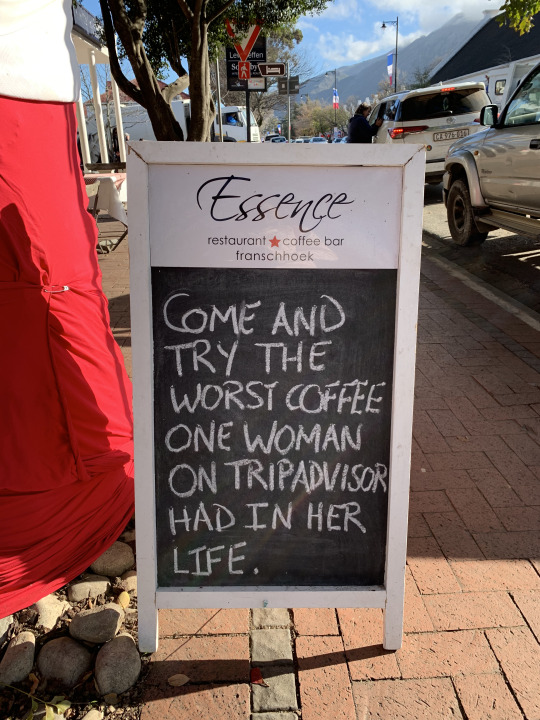 Essence
restaurant ★ coffee bar
franschhoek
COME AND
TRY THE
WORST COFFEE
ONE WOMAN
ON TRIPADVISOR
HAD IN HER
LIFE.